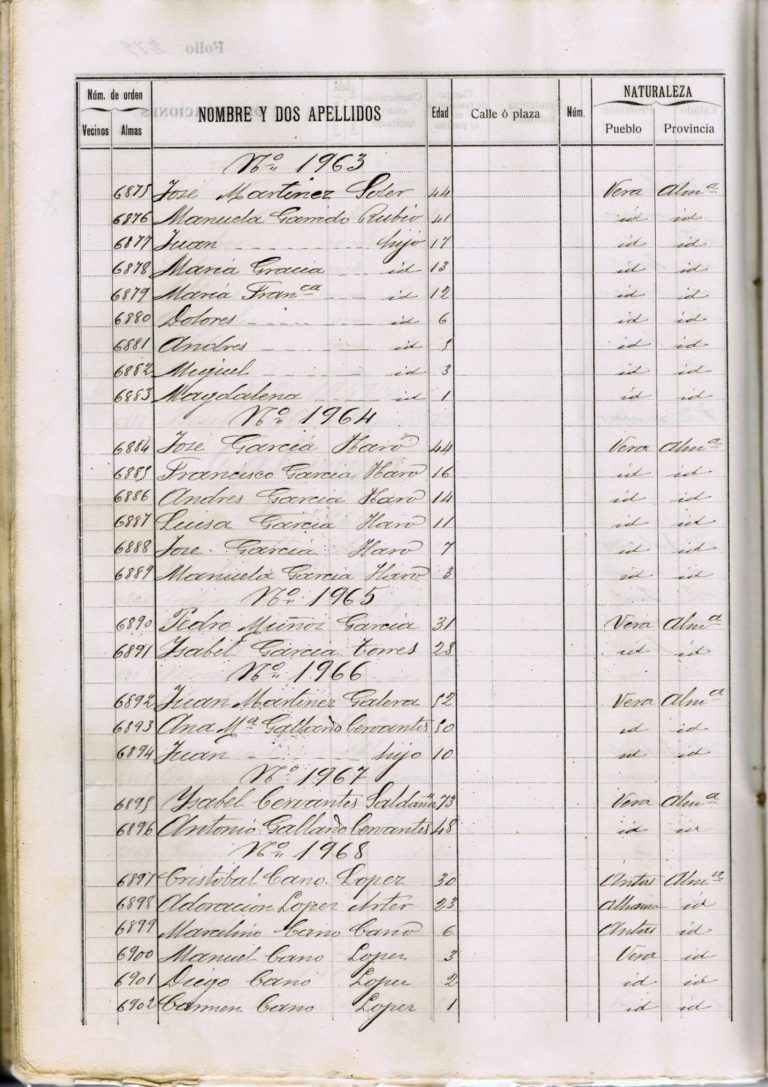 Núm. de orden NOMBRE Y DOS APELLIDOS Edad Calle ó plaza Núm. NATURALEZA
Vecinos Almas Pueblo Provincia
Nº 1963
6875 Jose Martinez Soler 44 Vera Almª
6876 Manuela Garrido Rubio 41 id id
6877 Juan hijo 17 id id
6878 Maria Gracia id 13 id id
6879 Maria Franca id 12 id id
6880 Dolores id 6 id id
6881 Andres id 5 id id
6882 Miguel id 3 id id
6883 Magdalena id 1 id id
Nº 1964
6884 Jose Garcia Haro 44 Vera Almª
6885 Francisco Garcia Haro 16 id id
6886 Andres Garcia Haro 14 id id
6887 Luisa Garcia Haro 11 id id
6888 Jose Garcia Haro 7 id id
6889 Manuela Garcia Haro 3 id id
Nº 1965
6890 Pedro Muñoz Garcia 31 Vera Almª
6891 Isabel Garcia Torres 28 id id
Nº 1966
6892 Juan Martinez Galera 52 Vera Almª
6893 Ana Mª Gallano Cervantes 50 id id
6894 Juan hijo 10 id id
Nº 1967
6895 Ysabel Cervantes Saldaña 73 Vera Almª
6896 Antonio Gallano Cervantes 48 id id
Nº 1968
6897 Cristobal Cano Lopez 30 Antas Almª
6898 Adoracion Lopez 23 id
6899 Marcelino Cano Cano 6 Antas id
6900 Manuel Cano Lopez 3 Vera id
6901 Diego Cano Lopez 2 id id
6902 Carmen Cano Lopez 1 id id